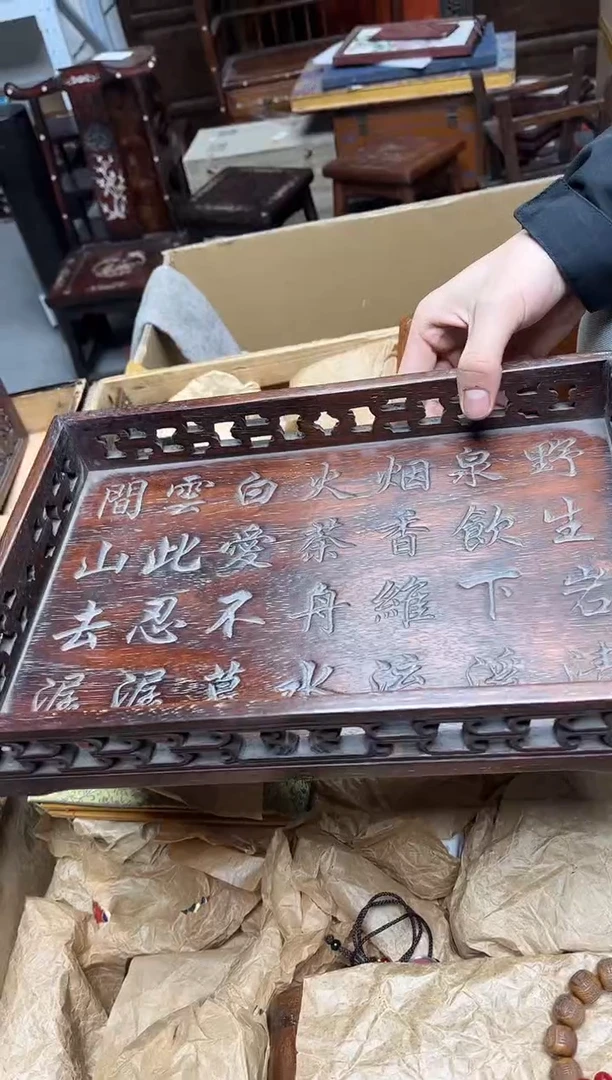 野泉烟火白雲間
生飲香茶愛此山
岩下維舟不忍去
清溪流水莫潺潺